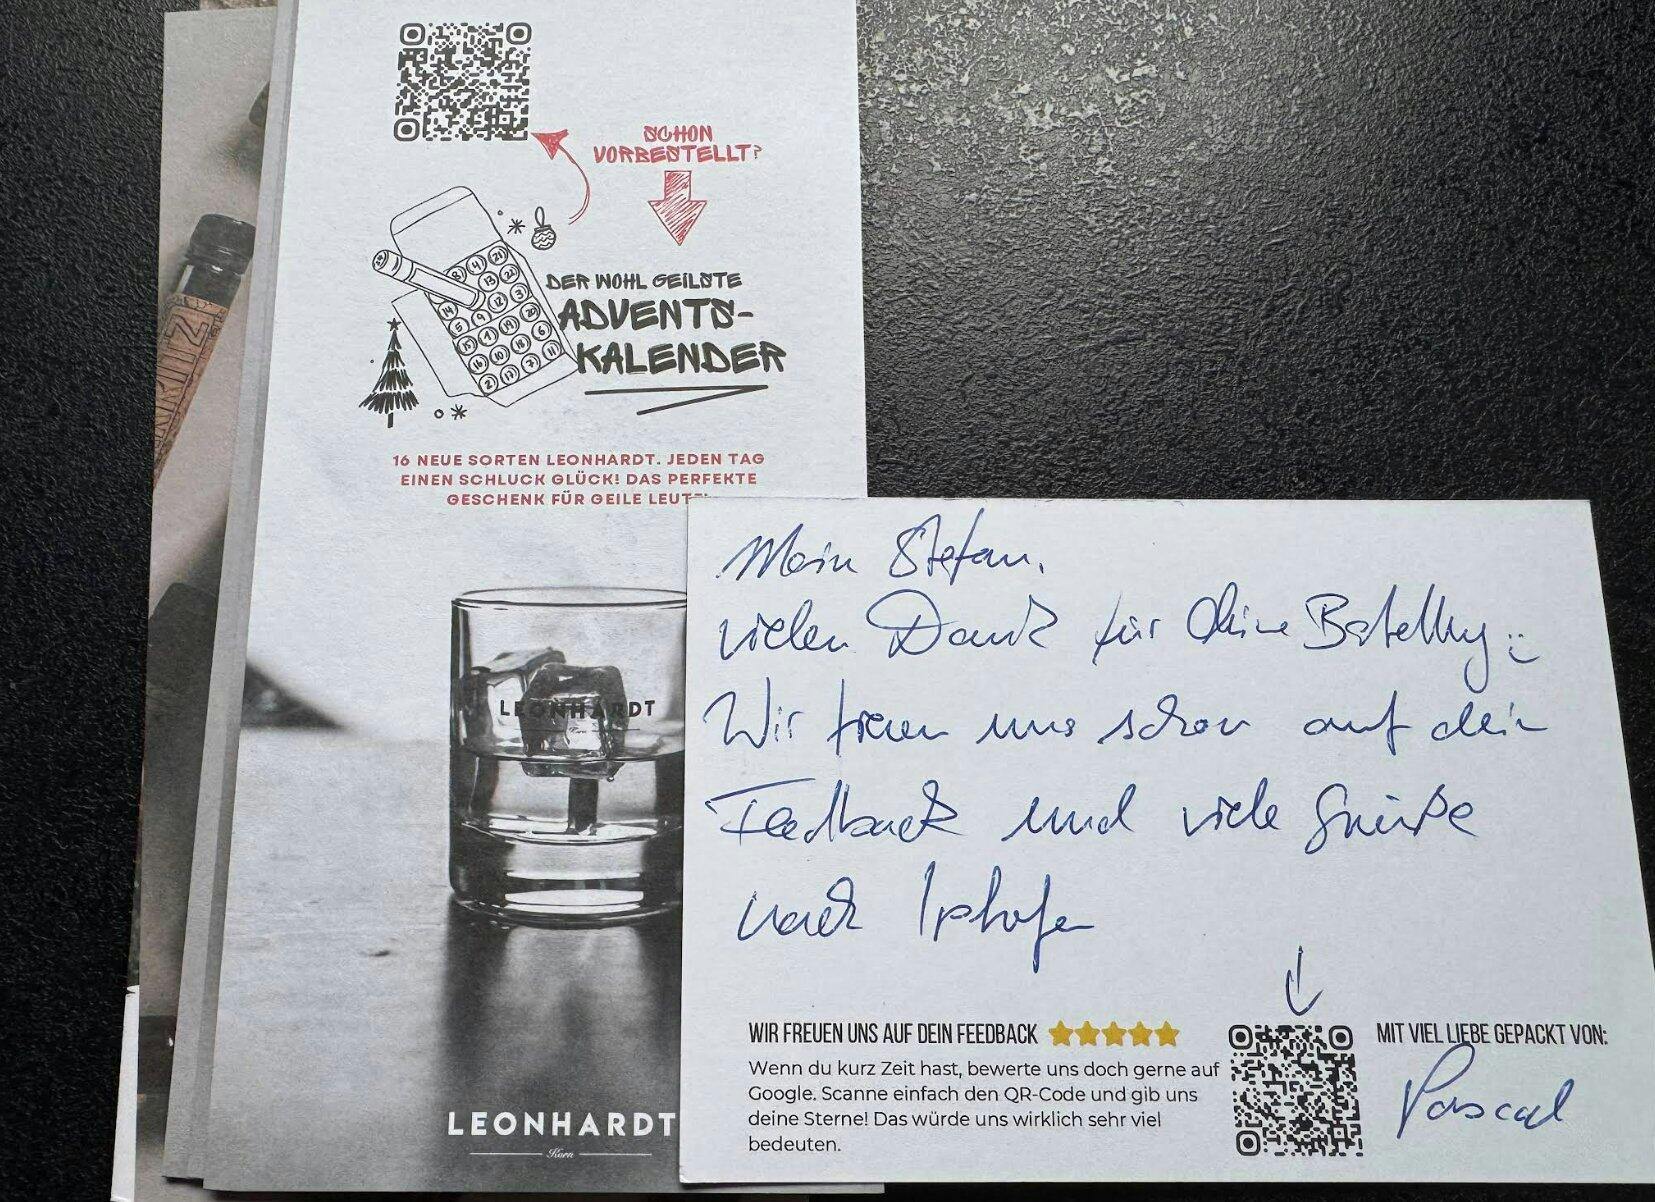 SCHON
VORBESTELLT?
DER WOHL GEILSTE
ADVENTS-
KALENDER
16 NEUE SORTEN LEONHARDT. JEDEN TAG
EINEN SCHLUCK GLÜCK! DAS PERFEKTE
GESCHENK FÜR GEILE LEUTE!
LEONHARDT
Korn
LEONHARDT
Korn
Moin Stefan,
vielen Dank für Deine Bestellung :)
Wir freuen uns schon auf dein
Feedback und viele Grüße
nach Iphofen
WIR FREUEN UNS AUF DEIN FEEDBACK
Wenn du kurz Zeit hast, bewerte uns doch gerne auf
Google. Scanne einfach den QR-Code und gib uns
deine Sterne! Das würde uns wirklich sehr viel
bedeuten.
MIT VIEL LIEBE GEPACKT VON:
Pascal